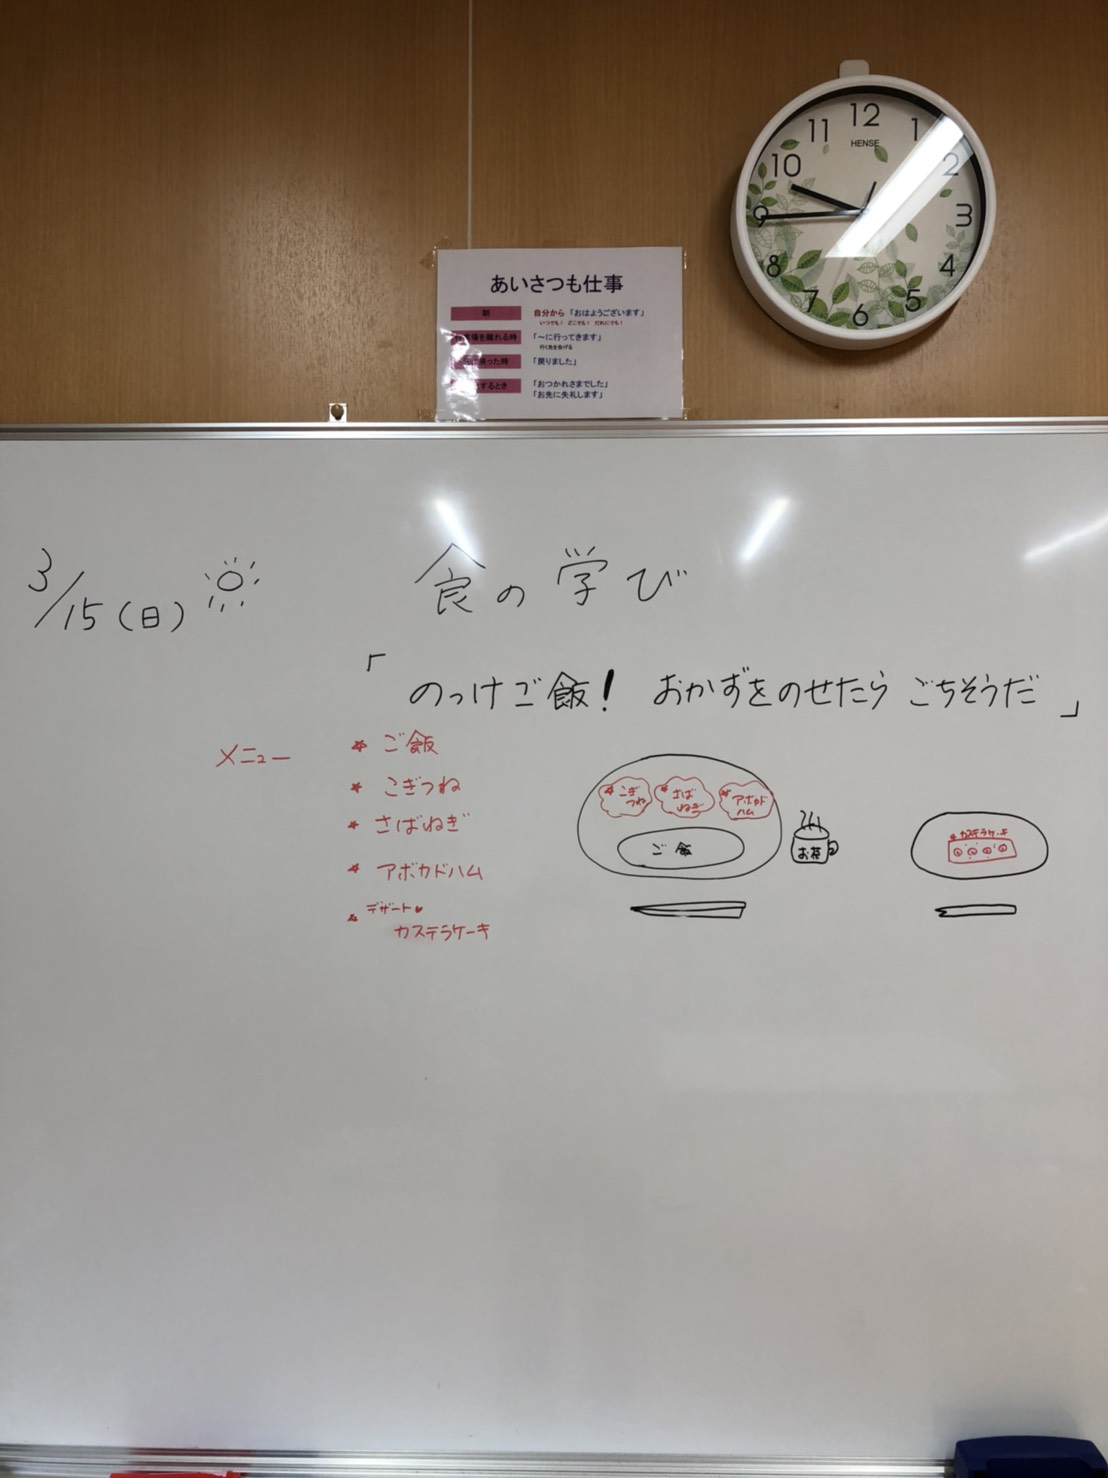 12
11
1
HENSE
10
2
9
3
8
4
7
5
6
あいさつも仕事
朝 自分から「おはようございます」
いつでも! どこでも! だれにでも!
を離れる時 「～に行ってきます」
行く先を告げる
った時 「戻りました」
するとき 「おつかれさまでした」
「お先に失礼します」
3/15(日)
食の学び
「のっけご飯! おかずをのせたら ごちそうだ」
メニュー
ご飯
こぎつね
さばねぎ
アボカドハム
デザート♥
カステラケーキ
こぎつね
さばねぎ
アボカドハム
ご飯
お茶
カステラケーキ